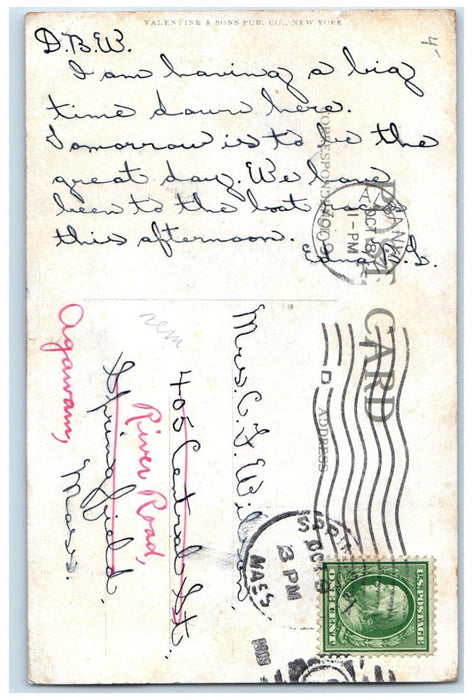 VALENTINE & SONS PUB. CO., NEW YORK
4-
D.B.W.
I am having a big
time down here.
Tomorrow is to be the
great day. We have
been to the boat races
this afternoon.
POST CARD
CORRESPONDENCE
ADDRESS
OCT 8
1-PM
1909
D
Mrs. C. F. Wil
405 Central St.
Springfield
Mass.
rem
River Road,
Agawam,
SPRI
OCT
3 PM
MASS.
1909
U.S. POSTAGE
ONE CENT